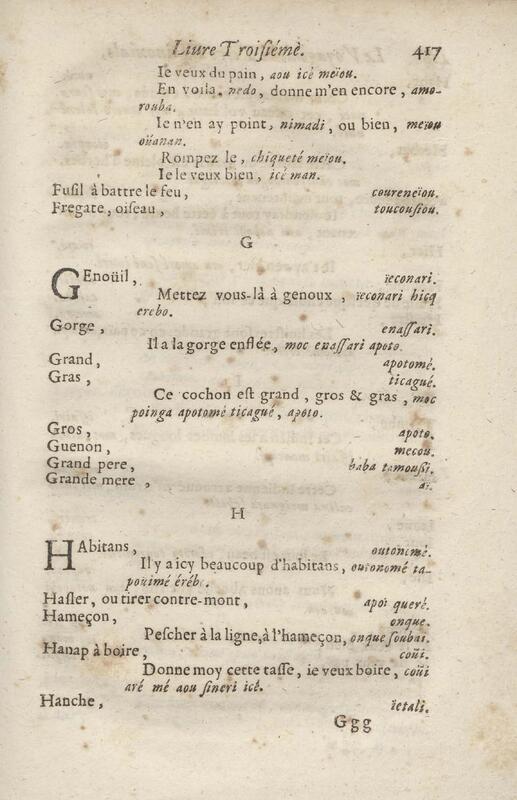 Liure Troiſiéme. 417
Ie veux du pain, aou icé meïou.
En voila. nedo, donne m'en encore, amo-
rouba.
Ie n'en ay point, nimadi, ou bien, meïou
oüanan.
Rompez le, chiqueté meïou.
Ie le veux bien, icé man.
Fuſil à battre le feu, coureneïou.
Fregate, oiſeau, toucouſiou.
G
GEnoüil, ïeconari.
Mettez vous-là à genoux, ïeconari hicq
erebo.
Gorge, enaſſari.
Il a la gorge enflée, moc enaſſari apoto.
Grand, apotomé.
Gras, ticagué.
Ce cochon eſt grand, gros & gras, moc
poinga apotomé ticagué, apoto.
Gros, apoto.
Guenon, mecou.
Grand pere, baba tamouſſi.
Grande mere, aï.
H
HAbitans, outonimé.
Il y a icy beaucoup d'habitans, outonomé ta-
pouimé érébo.
Haſler, ou tirer contre-mont, apoi queré.
Hameçon, onque.
Peſcher à la ligne, à l'hameçon, onque ſoubai.
Hanap à boire, coüi.
Donne moy cette taſſe, ie veux boire, coüi
aré mé aou ſineri icé.
Hanche, ïetali.
Ggg